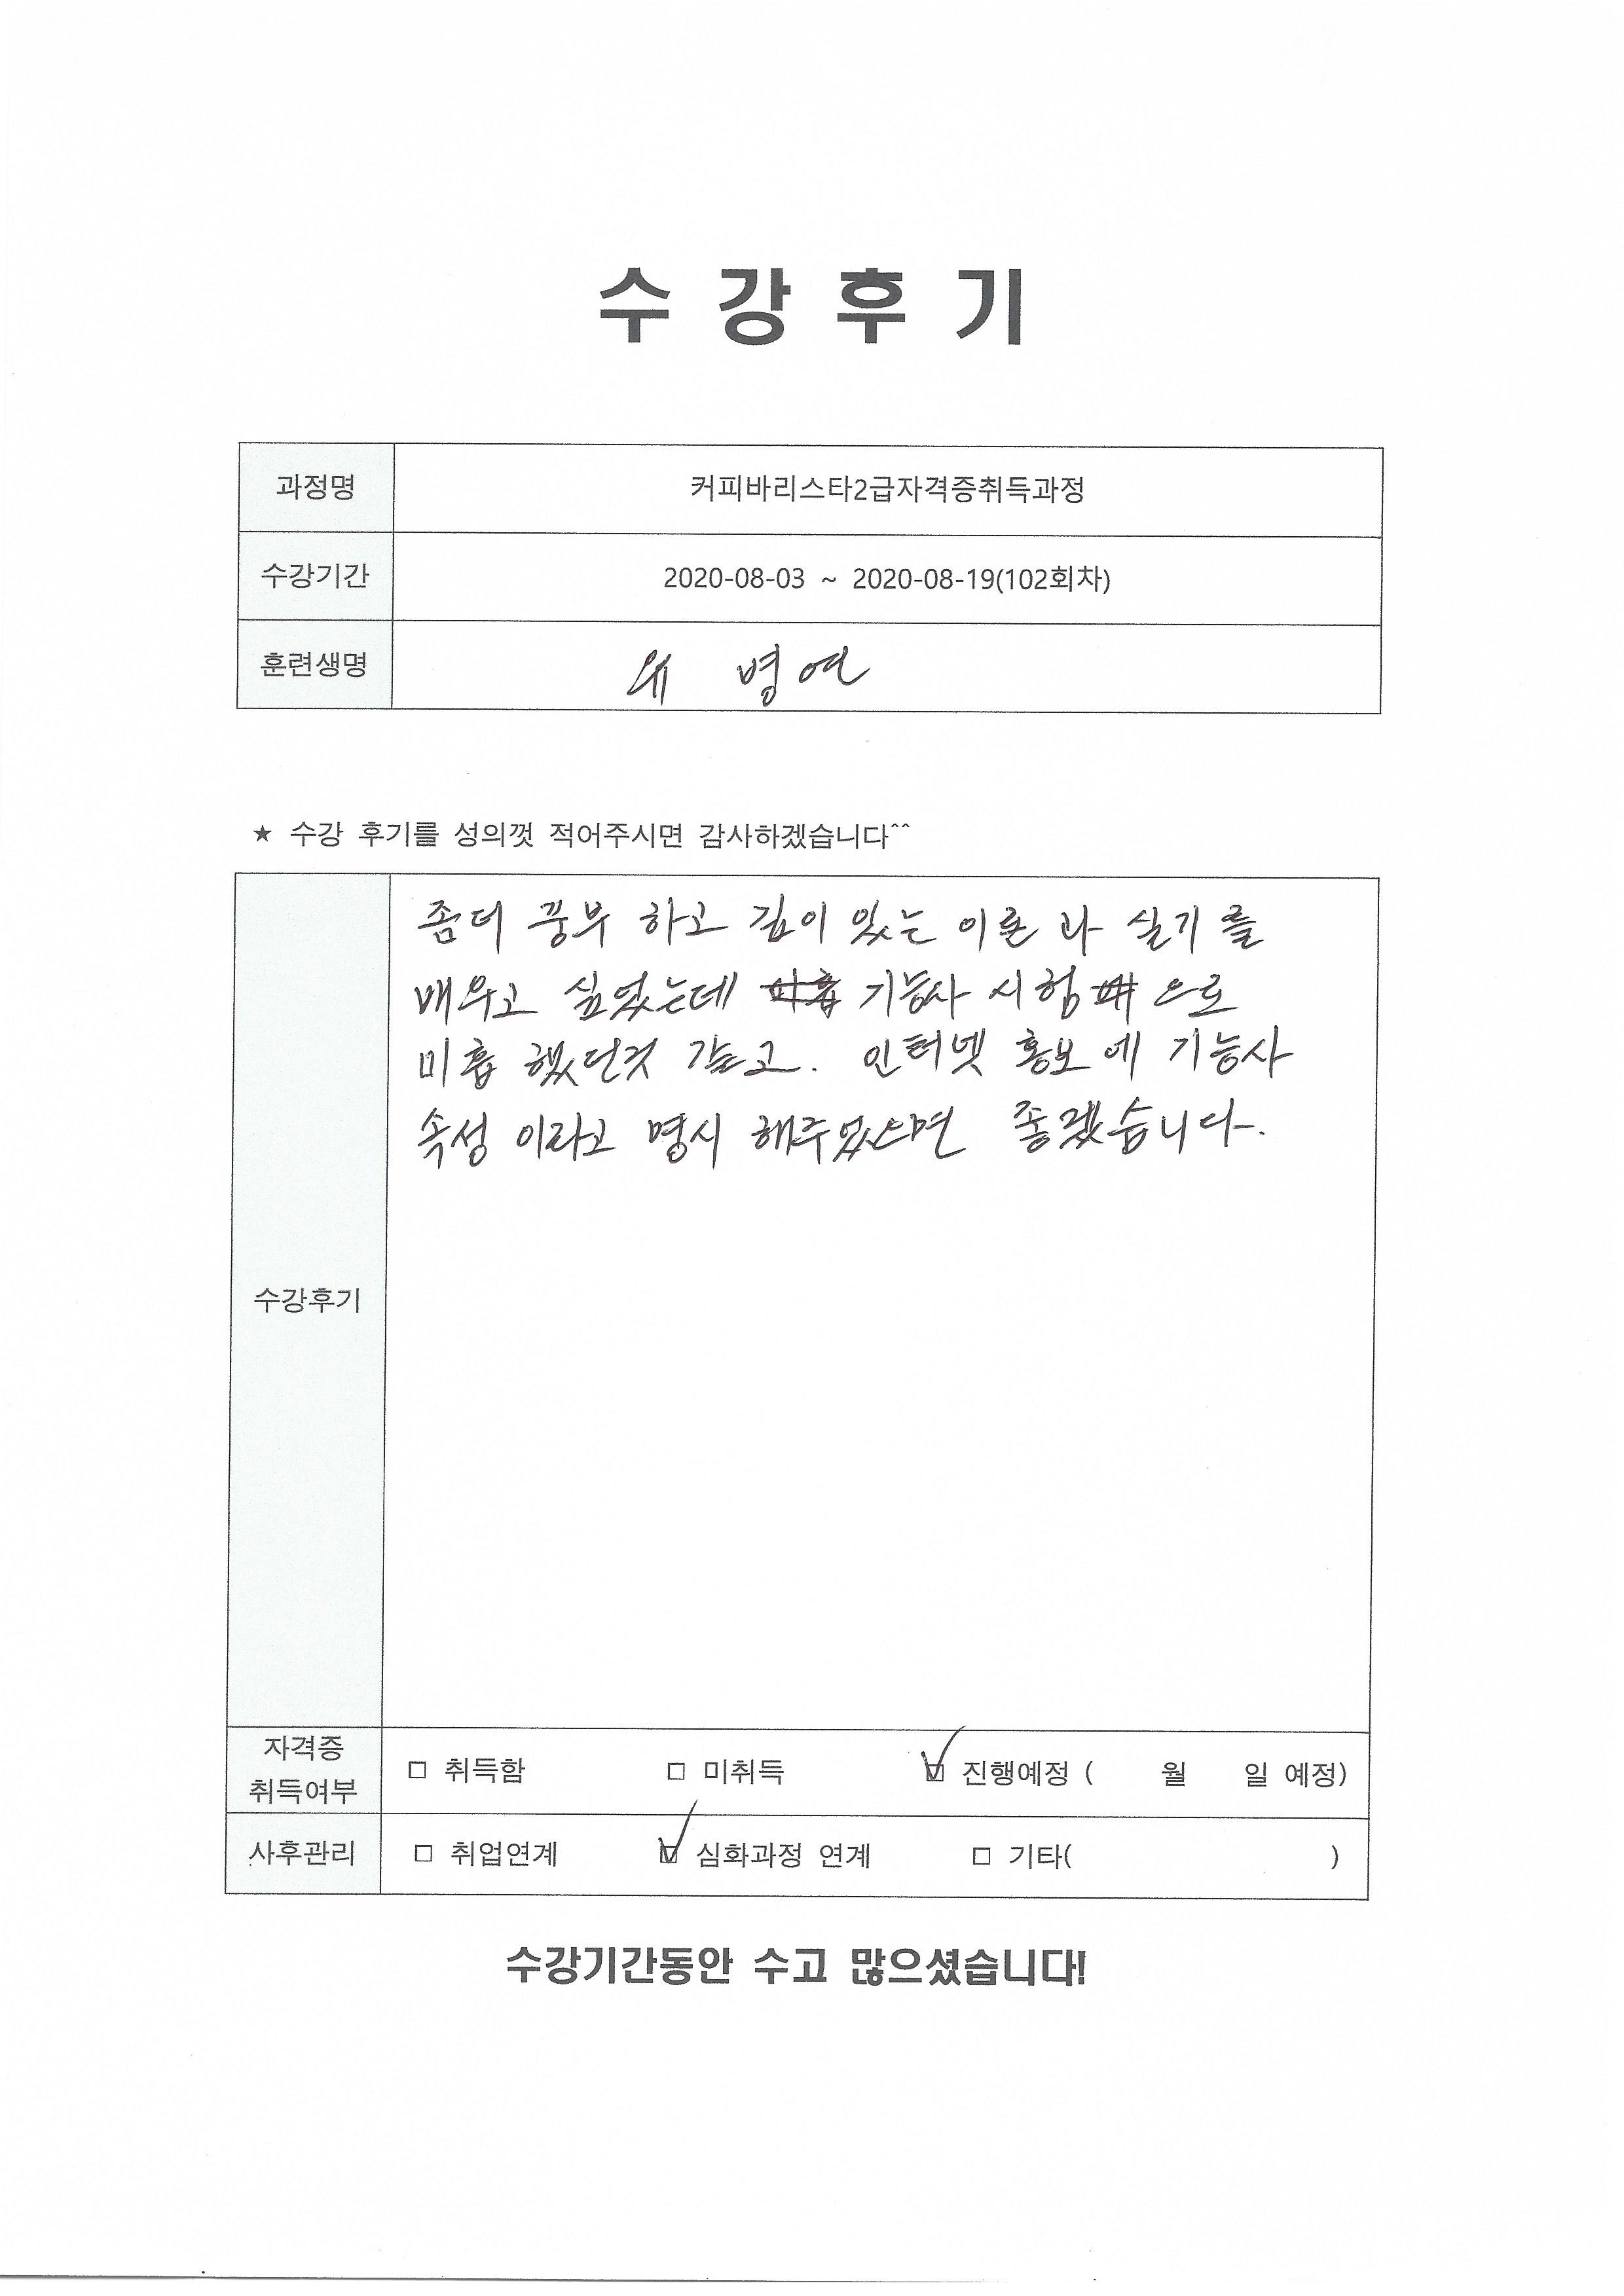 수 강 후 기
과정명 커피바리스타2급자격증취득과정
수강기간 2020-08-03 ~ 2020-08-19(102회차)
훈련생명 병연
★ 수강 후기를 성의껏 적어주시면 감사하겠습니다^^
좀더 풍부 하고 깊이 있는 이론 과 실기 를
배우고 싶었는데 기능사 시험 으로
미흡 했던것 같고. 인터넷 홍보 에 기능사
속성 이라고 명시 해주었으면 좋겠습니다.
수강후기
자격증
취득여부 □ 취득함 □ 미취득 ☑ 진행예정 ( 월 일 예정)
사후관리 □ 취업연계 ☑ 심화과정 연계 □ 기타( )
수강기간동안 수고 많으셨습니다!